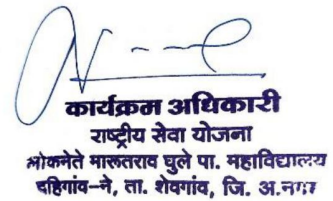 कार्यक्रम अधिकारी
राष्ट्रीय सेवा योजना
लोकनेते मारूतराव घुले पा. महाविद्यालय
दहिगांव-ने, ता. शेवगांव, जि. अ.नगर